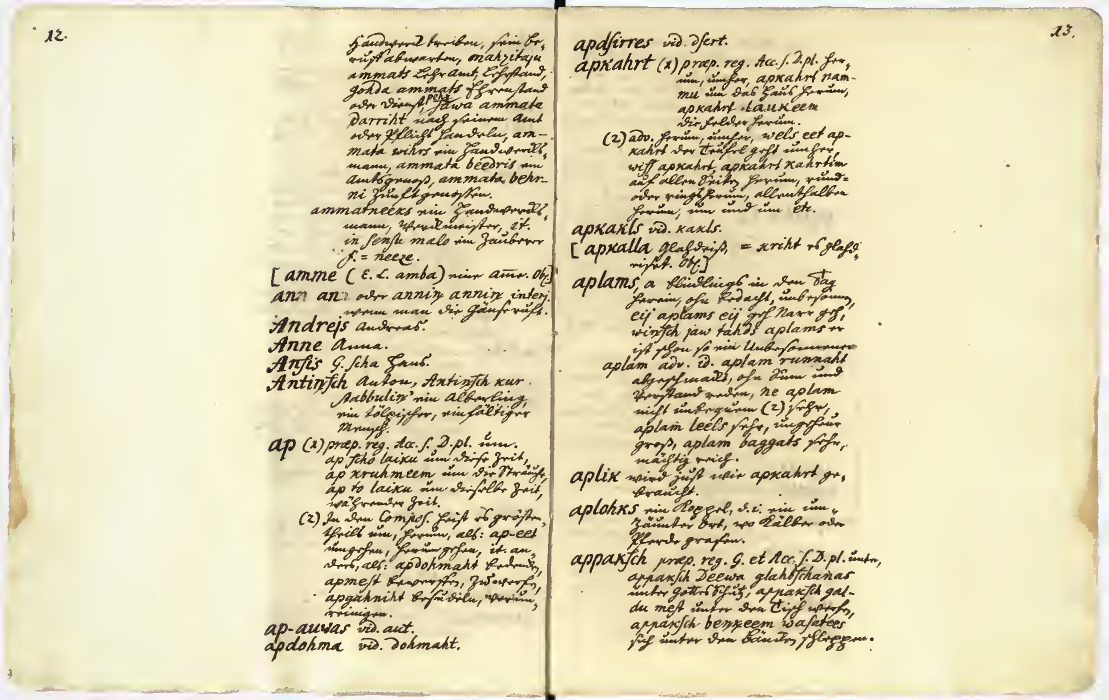 12.
Handwerk treiben, sein be-
ruff abwarten, mahzitaju
ammats Lehr Amt, Lehrstand,
gohda ammats Ehrenstand
oder Dienst, pehz sawa ammata
darriht nach seinem Amt
oder Pflicht handeln, am-
mata wihrs ein Handwercks-
mann, ammata beedris ein
Amtsgenoß, ammata behr-
ni Zunftgenossen.
ammatneeks ein Handwercks-
mann, Werckmeister, it.
in sensu malo ein Zauberer
f. = neeze.
[amme (E. L. amba) eine Ame. Obl.]
ann ann oder annin annin interj.
wenn man die Gänse ruft.
Andrejs Andreas.
Anne Anna.
Ansis G. scha Hans.
Antinsch Anton, Antinsch kur
stabbulin ein Alberling,
ein tölpischer, einfältiger
Mensch.
ap (1) præp. reg. Acc. s. D. pl. um.
ap scho laiku um diese Zeit,
ap kruhmeem um die Sträuche,
ap to laiku um dieselbe Zeit,
währender Zeit.
(2) In den Compos. heist es grösten-
theils um, herum, als: ap-eet
umgehen, herum gehen, it. an-
ders, als: apdohmaht bedencken,
apmest bewerffen, zuwerffen,
apgahniht besudeln, verun-
reinigen.
ap-auwas vid. aut.
apdohma vid. dohmaht.
13.
apdsirres vid. dsert.
apkahrt (1) præp. reg. Acc. s. D. pl. her-
um, umher, apkahrt nam-
mu um das Haus herum,
apkahrt laukeem
die Felder herum.
(2) adv. herum, umher, wels eet ap-
kahrt der Teufel geht umher,
wiss apkahrt, apkahrt kahrtim
auf allen Seiten herum, rund-
oder ringsherum, allenthalben
herum, um und um etc.
apkakls vid. kakls.
[apkalla Glahdeiß, = kriht es glahd-
eiset. Obl.]
aplams, a blindlings in den Tag
herein, ohn bedacht, unbesonnen,
eij aplams eij geh Narr geh,
winsch jaw tahds aplams er
ist schon so ein Unbesonnener
aplam adv. id. aplam runnaht
abgeschmackt, ohn Sinn und
Verstand reden, ne aplam
nicht unbequem (2) sehr,
aplam leels sehr, ungeheur
groß, aplam baggats sehr,
mächtig reich.
aplik wird just wie apkahrt ge-
braucht.
aplohks ein Koppel, d. i. ein um-
zäunter Ort, wo Kälber oder
Pferde grasen.
appaksch præp. reg. G. et Acc. s. D. pl. unter,
appaksch Deewa glahbschanas
unter Gottes Schutz, appaksch gal-
du mest unter den Tisch werfen,
appaksch benkeem wasatees
sich unter den Bäncken schleppen.